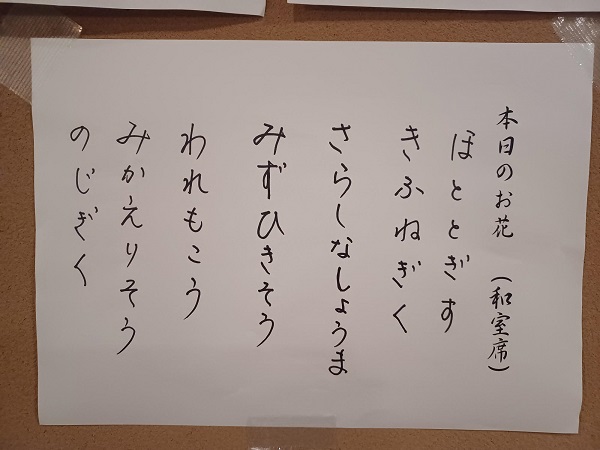 本日のお花 (和室席)
ほととぎす
きふねぎく
さらしなしょうま
みずひきそう
われもこう
みかえりそう
のじぎく